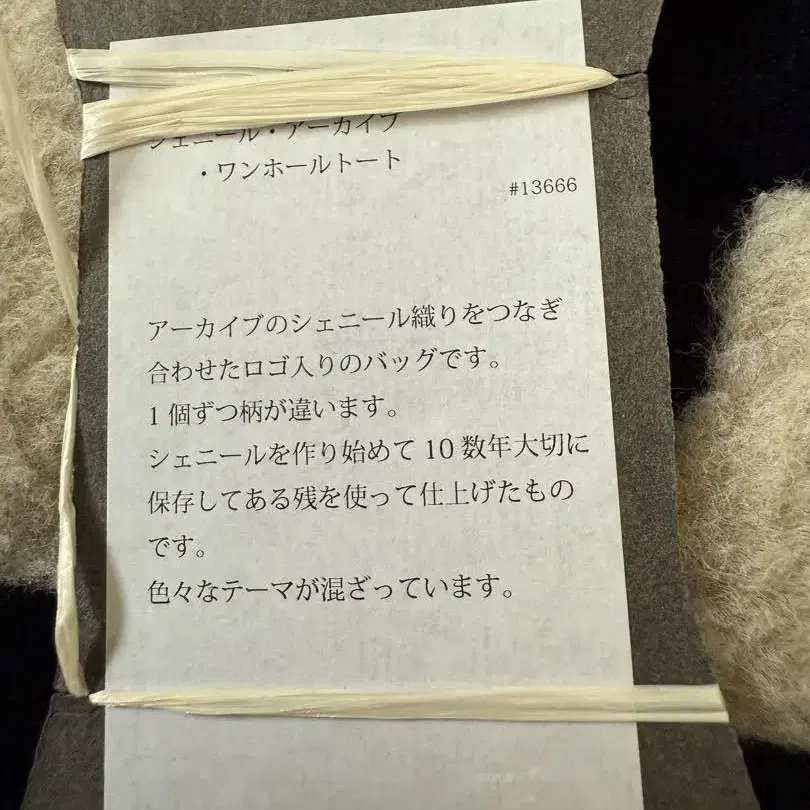 シェニール・アーカイブ
・ワンホールトート
#13666
アーカイブのシェニール織りをつなぎ
合わせたロゴ入りのバッグです。
1個ずつ柄が違います。
シェニールを作り始めて10数年大切に
保存してある残を使って仕上げたもの
です。
色々なテーマが混ざっています。